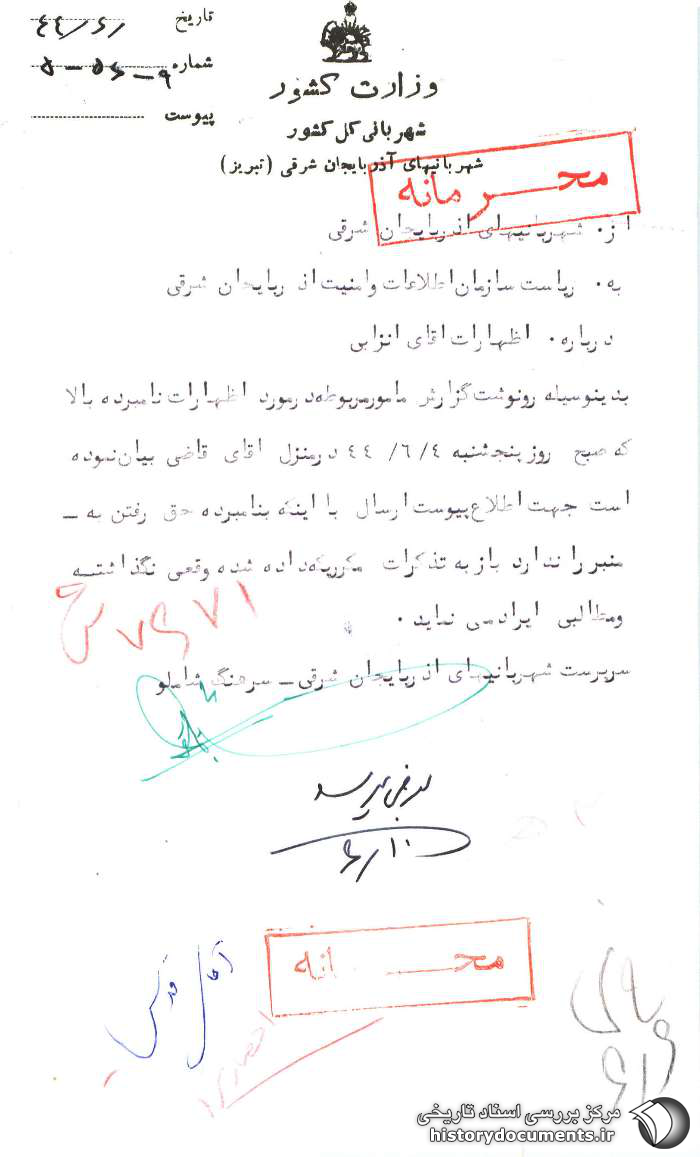 تاریخ
شماره ۹-۵۶-۵
پیوست
وزارت کشور
شهربانی کل کشور
شهربانیهای آذربایجان شرقی (تبریز)
محرمانه
از. شهربانیهای اذربایجان شرقی
به. ریاست سازمان اطلاعات وامنیت اذربایجان شرقی
درباره. اظهارات اقای انزابی
بدینوسیله رونوشت گزارش مامور مربوطه درمورد اظهارات نامبرده بالا
که صبح روز پنجشنبه ۴۴/۶/۴ درمنزل اقای قاضی بیان نموده
است جهت اطلاع پیوست ارسال با اینکه بنامبرده حق رفتن به ـ
منبر را ندارد باز به تذکرات مکرریکه داده شده وقعی نگذاشتــه
ومطالبی ایراد می نماید.
سرپرست شهربانیهای اذربایجان شرقی ـ سرهنگ شاملو
بعرض میرسد
۶/۱۰
محـــانه
آقای
مرکز بررسی اسناد تاریخی
historydocuments.ir